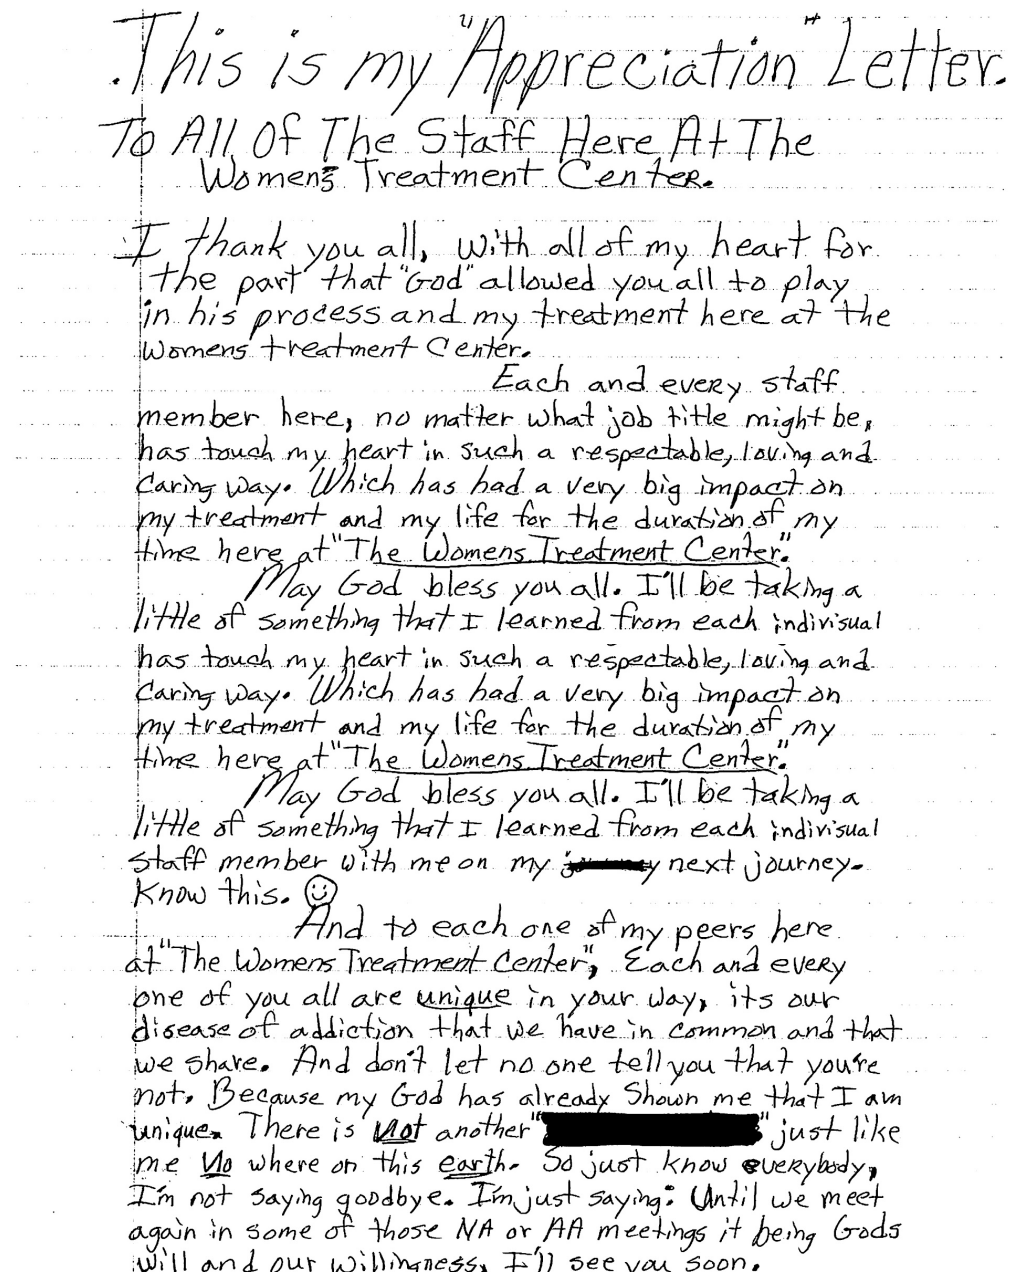 This is my "Appreciation" Letter.
To All Of The Staff Here At The
Womens Treatment Center.
I thank you all, with all of my heart for
the part that "God" allowed you all to play
in his process and my treatment here at the
Womens treatment Center.
Each and every staff
member here, no matter what job title might be,
has touch my heart in such a respectable, loving and
Caring way. Which has had a very big impact on
my treatment and my life for the duration of my
time here at "The Womens Treatment Center."
May God bless you all. I'll be taking a
little of something that I learned from each indivisual
has touch my heart in such a respectable, loving and
Caring way. Which has had a very big impact on
my treatment and my life for the duration of my
time here at "The Womens Treatment Center."
May God bless you all. I'll be taking a
little of something that I learned from each indivisual
staff member with me on my next journey.
Know this.
And to each one of my peers here
at "The Womens Treatment Center", Each and every
one of you all are unique in your way, its our
disease of addiction that we have in common and that
we share. And don't let no one tell you that you're
not. Because my God has already Shown me that I am
unique. There is Not another " " just like
me No where on this earth. So just know everybody,
I'm not saying goodbye. I'm just saying: Until we meet
again in some of those NA or AA meetings it being Gods
will and our willingness, I'll see you soon.